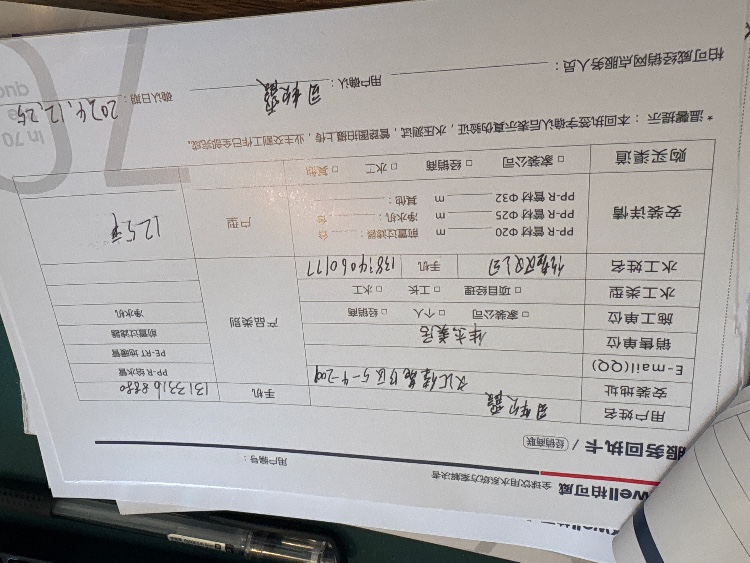 well柏可威 全球饮用水系统方案解决者
用户编号：
服务回执卡 / 经销商联
用户姓名
安装地址 5-4-209 手机 13133168880
E-mail(QQ)
销售单位 佳杰美居
施工单位 □ 家装公司 □ 个人 □ 经销商
水工类型 □ 项目经理 □ 工长 □ 水工
产品类别
PP-R 给水管
PE-RT 地暖管
前置过滤器
净水机
水工姓名 手机 13834060177
安装详情
PP-R 管材 Φ20 m 前置过滤器： 台
PP-R 管材 Φ25 m 净水机： 台
PP-R 管材 Φ32 m 其他：
户型 125平
购买渠道 □ 家装公司 □ 经销商 □ 水工 □ 其他
* 温馨提示：本回执签字确认后表示真伪验证，水压测试，管路图拍摄上传，业主交割工作已全部完成。
柏可威经销网点服务人员： 用户确认： 确认日期：2024.12.25
in 70